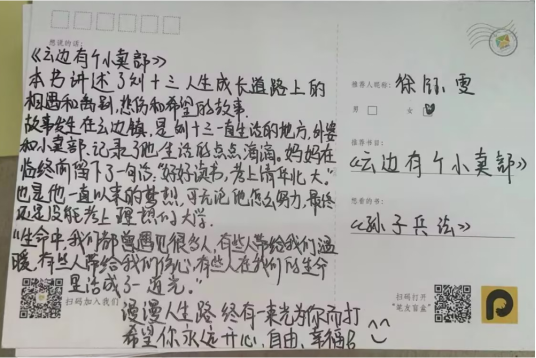 想说的话:
《云边有个小卖部》
本书讲述了刘十三人生成长道路上的
相遇和离别,悲伤和希望的故事.
故事发生在云边镇,是刘十三一直生活的地方,外婆
和小卖部.记录了他生活的点点滴滴.妈妈在
临终前留下了一句话:"好好读书,考上清华北大."
也是他一直以来的梦想,可无论他怎么努力,最终
还是没能考上理想的大学.
"生命中,我们都曾遇见很多人,有些人带给我们温
暖,有些人带给我们伤心,有些人在我们的生命
里活成了一道光."
漫漫人生路 终有一束光为你而打
希望你永远开心,自由,幸福
扫码加入我们
推荐人昵称: 徐 雯
男 女
推荐书目:
《云边有个小卖部》
想看的书:
《孙子兵法》
扫码打开
"笔友盲盒"
P